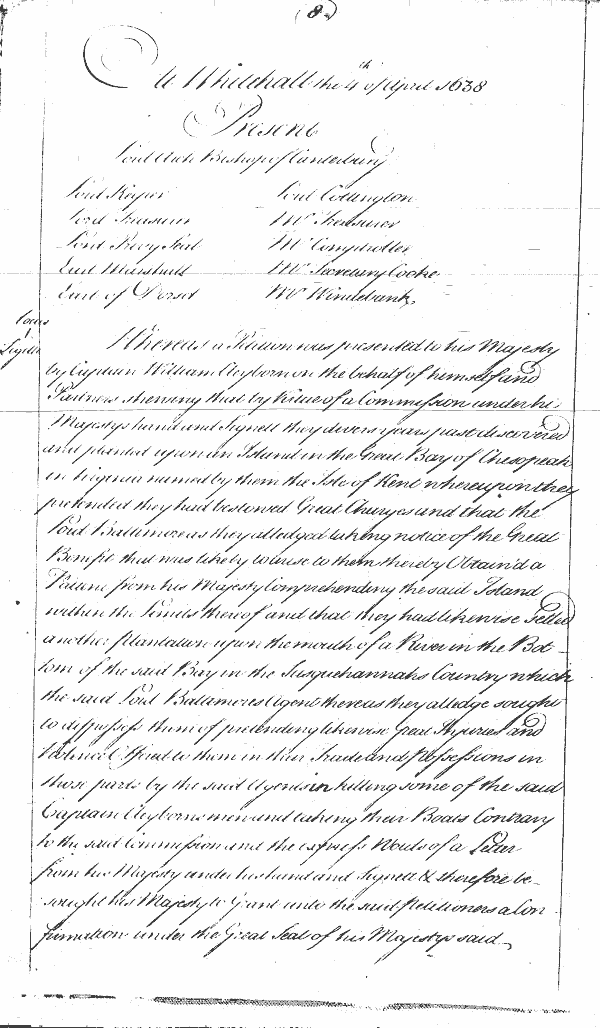 8.
At Whitehall the 4th of April 1638
Present
Lord Arch Bishop of Canterbury
Lord Keeper Lord Cottington
Lord Treasurer Mr Treasurer
Lord Privy Seal Mr Comptroller
Earl Marshall Mr Secretary Cooke
Earl of Dorset Mr Windebank
Locus
Sigilli
Whereas a Petition was presented to his Majesty
by Captain William Cleyborn on the behalf of himself and
Partners shewing that by Virtue of a Commission under his
Majestys hand and Signett they divers years past discovered
and planted upon an Island in the Great Bay of Chesopeak
in Virginia named by them the Isle of Kent whereupon they
pretended they had bestowed Great Charges and that the
Lord Baltimore as they alledged taking notice of the Great
Benefit that was likely to arise to them thereby Obtain'd a
Patent from his Majesty Comprehending the said Island
within the Limits thereof and that they had likewise Settled
another plantation upon the mouth of a River in the Bot-
tom of the said Bay in the Susquehannahs Country which
the said Lord Baltimores Agent there as they alledge sought
to dispossess them of pretending likewise Great Injuries and
Violence Offered to them in their Trade and Possessions in
those parts by the said Agents in killing some of the said
Captain Cleyborns men and taking their Boats Contrary
to the said Commission and the express Words of a Letter
from his Majesty under his hand and Signett & therefore be-
sought his Majesty to Grant unto the said petitioners a Con
firmation under the Great Seal of his Majestys said